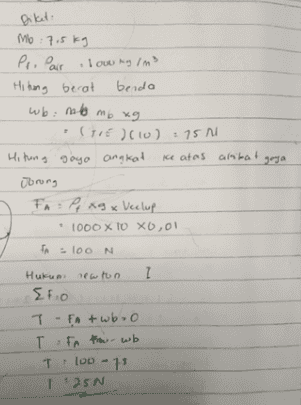 Dikit:
Mb : 7,5 kg
Pf. Pair : 1000 kg/m³
Hitung berat benda
wb = mb xg
= (7,5)(10) = 75 N
Hitung gaya angkat ke atas akibat gaya
dorong
FA = Pf xg x Vcelup
= 1000 x 10 x 0,01
FA = 100 N
Hukum newton I
Σf=0
T - FA + wb = 0
T = FA - wb
T = 100 - 75
T = 25 N